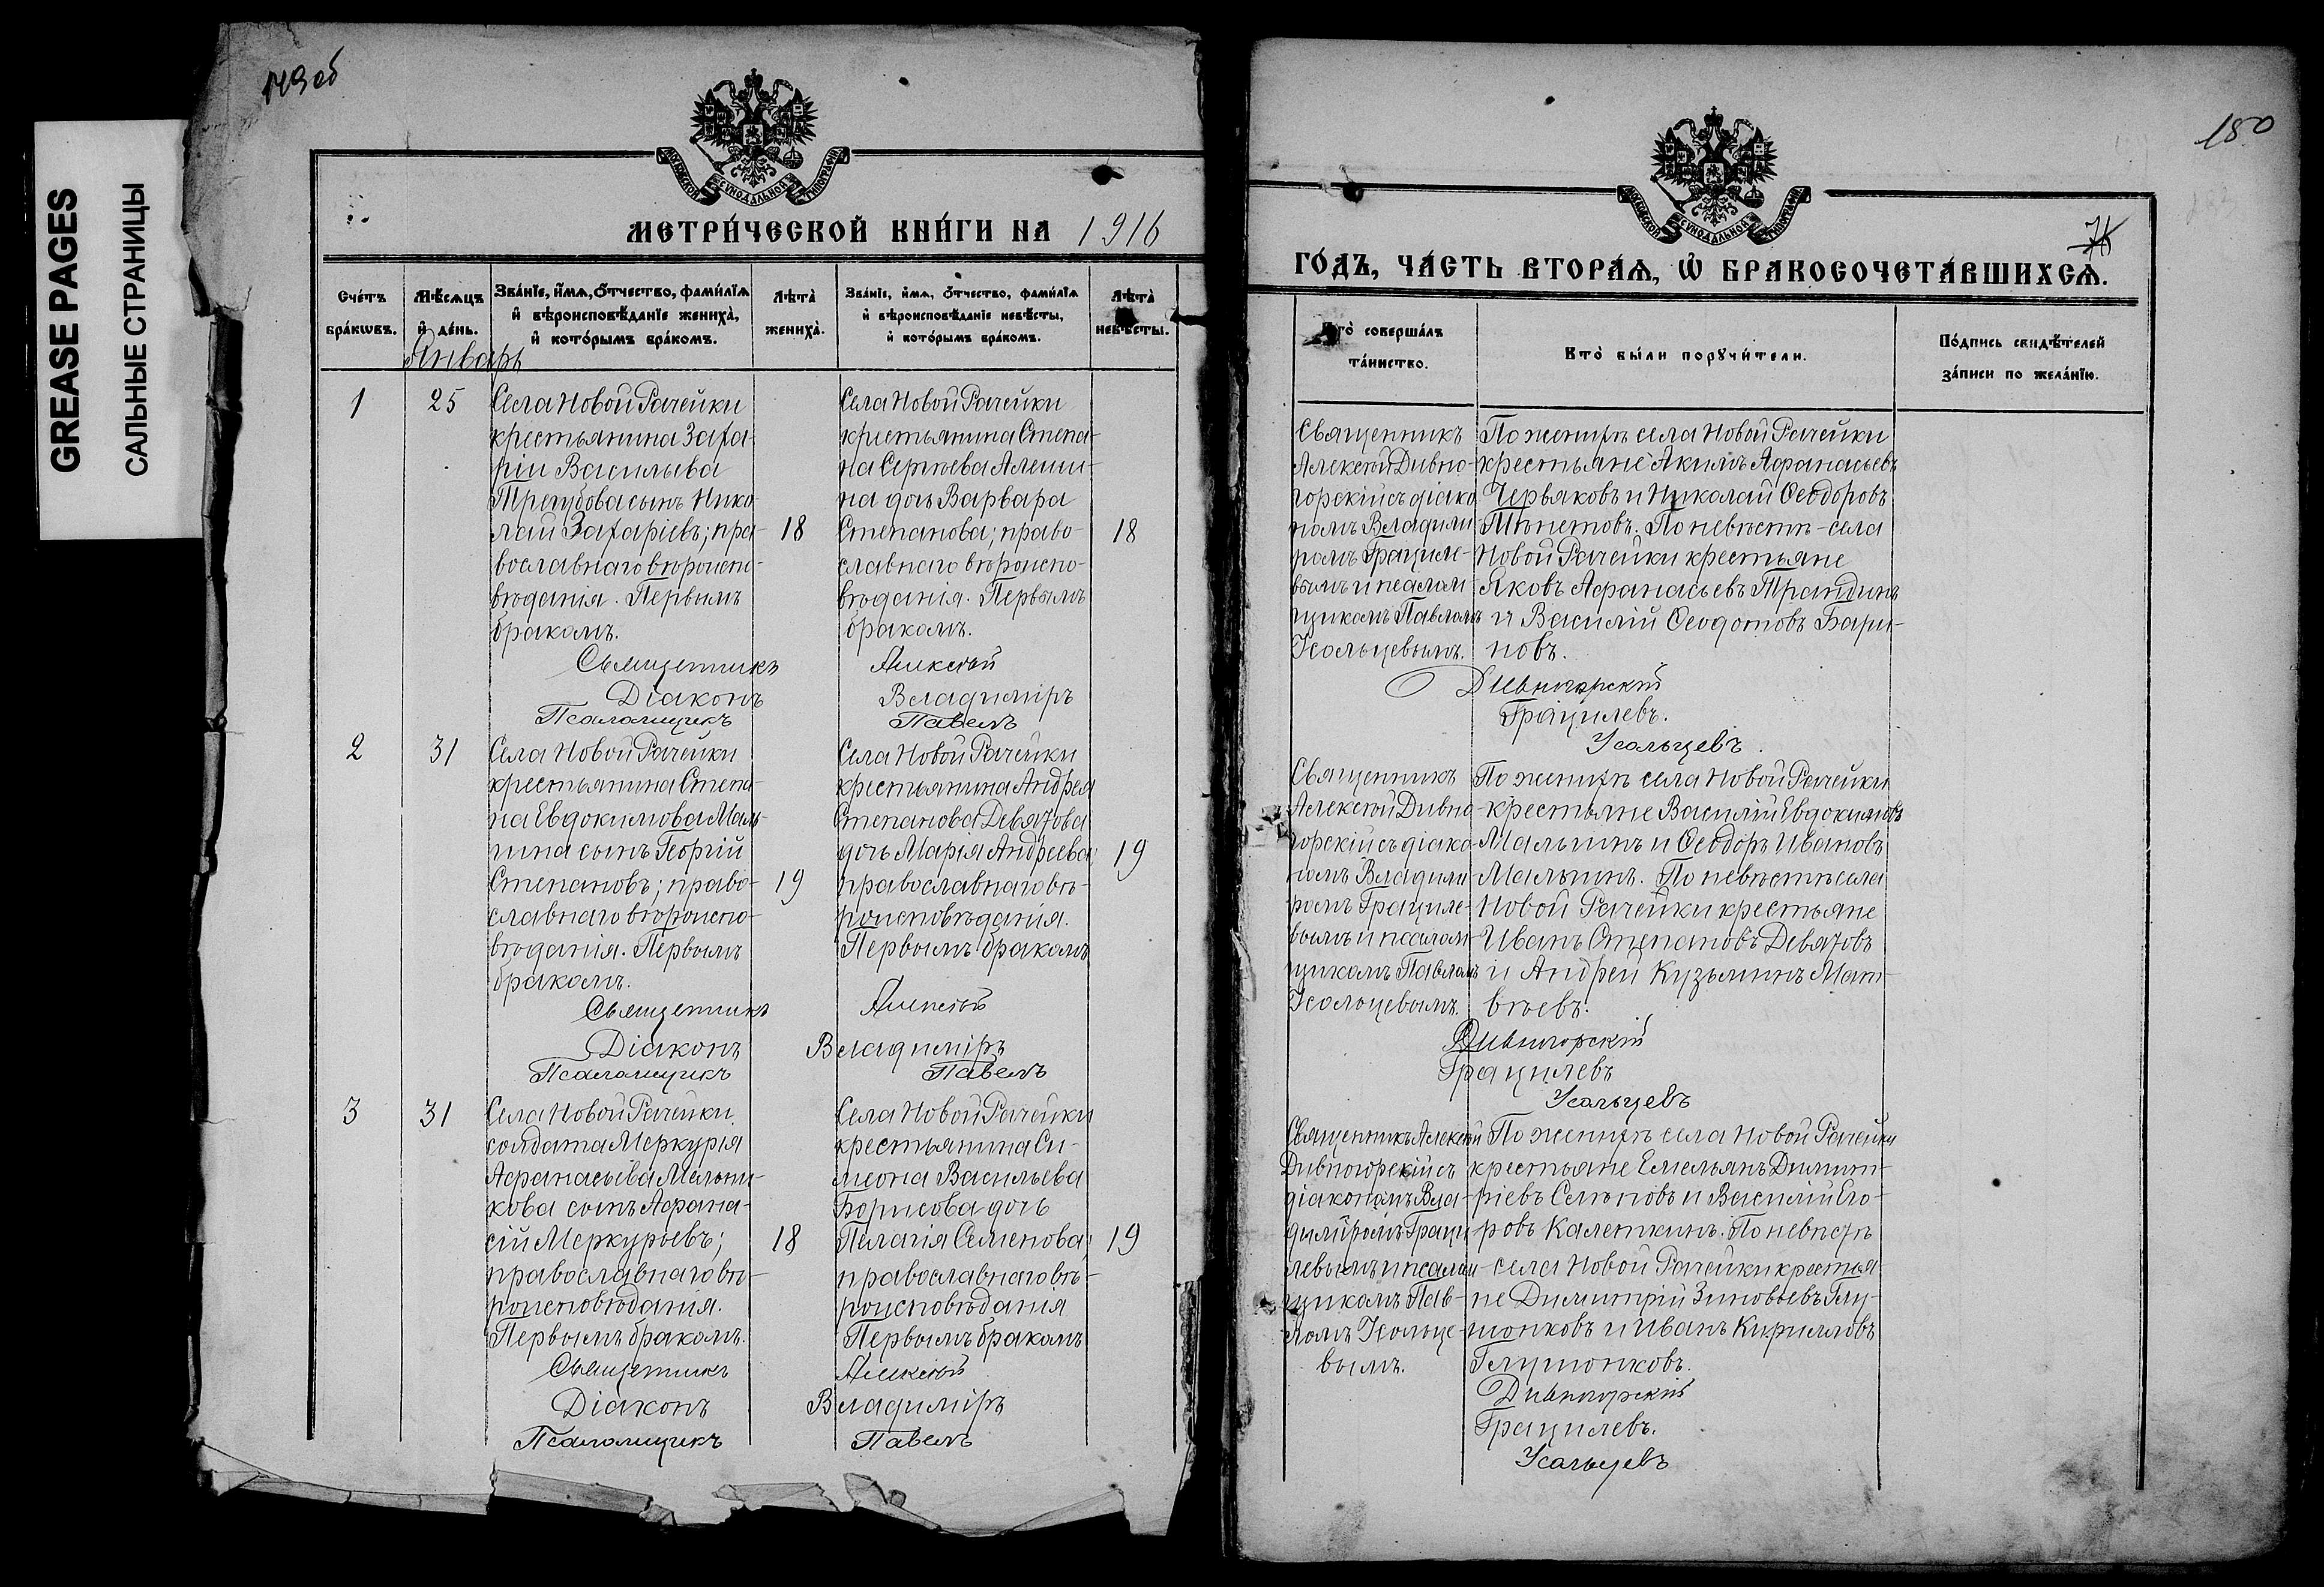 149 об
GREASE PAGES
САЛЬНЫЕ СТРАНИЦЫ
МОСКОВСКОЙ СѴНОДАЛЬНОЙ ТИПОГРАФІИ
МЕТРИ́ЧЕСКОЙ КНИ́ГИ НА 1916
Сче́тъ бра́кѡвъ.
Мѣ́сѧцъ и҆ де́нь.
Зва́нїе, и҆́мѧ, ѻ҆́тчество, фами́лїѧ
и҆ вѣроисповѣ́данїе жениха̀,
и҆ кото́рымъ бра́комъ.
Лѣта̀ жениха̀.
Зва́нїе, и҆́мѧ, ѻ҆́тчество, фами́лїѧ
и҆ вѣроисповѣ́данїе невѣ́сты,
и҆ кото́рымъ бра́комъ.
Лѣта̀ невѣ́сты.
Январь
1
25
Села Новой Рачейки
крестьянина Заха-
рiи Васильева
сынъ Нико-
лай Захарiевъ; пра-
вославнаго вѣроиспо-
вѣданiя. Первымъ
бракомъ.
18
Села Новой Рачейки
крестьянина Степа-
на Сергѣева Алеши-
на дочь Варвара
Степанова; право-
славнаго вѣроиспо-
вѣданiя. Первымъ
бракомъ.
18
Священникъ Алексѣй
Дiаконъ Владимiръ
Псаломщикъ Павелъ
2
31
Села Новой Рачейки
крестьянина Степа-
на Евдокимова Маль-
гина сынъ Георгiй
Степановъ; право-
славнаго вѣроиспо-
вѣданiя. Первымъ
бракомъ.
19
Села Новой Рачейки
крестьянина Андрея
Степанова Девятова
дочь Марiя Андреева;
православнаго вѣ-
роисповѣданiя.
Первымъ бракомъ
19
Священникъ Алексѣй
Дiаконъ Владимiръ
Псаломщикъ Павелъ
3
31
Села Новой Рачейки
солдата Меркурiя
Афанасьева Мельни-
кова сынъ Афана-
сiй Меркурьевъ;
православнаго вѣ-
роисповѣданiя.
Первымъ бракомъ.
18
Села Новой Рачейки
крестьянина Си-
меона Васильева
Борисова дочь
Пелагiя Семенова;
православнаго вѣ-
роисповѣданiя
Первымъ бракомъ
19
Священникъ Алексѣй
Дiаконъ Владимiръ
Псаломщикъ Павелъ
180
МОСКОВСКОЙ СѴНОДАЛЬНОЙ ТИПОГРАФІИ
ГО́ДЪ, ЧА́СТЬ ВТОРА́Ѧ, Ѡ҆ БРАКОСОЧЕТА́ВШИХСѦ.
Кто̀ соверша́лъ
та́инство.
Кто̀ бы́ли порꙋчи́тели.
По́дпись свидѣ́телей
за́писи по жела́нїю.
Священникъ
Алексѣй Дивно-
горскiй съ дiако-
номъ Владими-
ромъ Грациле-
вымъ и псалом-
щикомъ Павломъ
Усольцевымъ.
По женихѣ села Новой Рачейки
крестьяне Акимъ Афанасьевъ
Червяковъ и Николай Ѳеодоровъ
По невѣстѣ - села
Новой Рачейки крестьяне
Яковъ Афанасьевъ
и Василiй Ѳеодотовъ Бари-
новъ.
Дивногорскiй
Грацилевъ.
Усольцевъ.
Священникъ
Алексѣй Дивно-
горскiй съ дiако-
номъ Владими-
ромъ Грациле-
вымъ и псалом-
щикомъ Павломъ
Усольцевымъ.
По женихѣ села Новой Рачейки
крестьяне Василiй Евдокимовъ
Мальгинъ и Ѳеодоръ Ивановъ
Мальгинъ. По невѣстѣ села
Новой Рачейки крестьяне
Иванъ Степановъ Девятовъ
и Андрей Кузьминъ Мат-
вѣевъ.
Дивногорскiй
Грацилевъ
Усольцевъ
Священникъ Алексѣй
Дивногорскiй съ
дiакономъ Вла-
димiромъ Граци-
левымъ и псалом-
щикомъ Пав-
ломъ Усольце-
вымъ.
По женихѣ села Новой Рачейки
крестьяне Емельянъ Димит-
рiевъ и Василiй Его-
ровъ Калеткинъ. По невѣстѣ
села Новой Рачейки крестья-
не Димитрiй Зиновьевъ Глу-
шонковъ и Иванъ Кирилловъ
Глушонковъ.
Дивногорскiй
Грацилевъ.
Усольцевъ